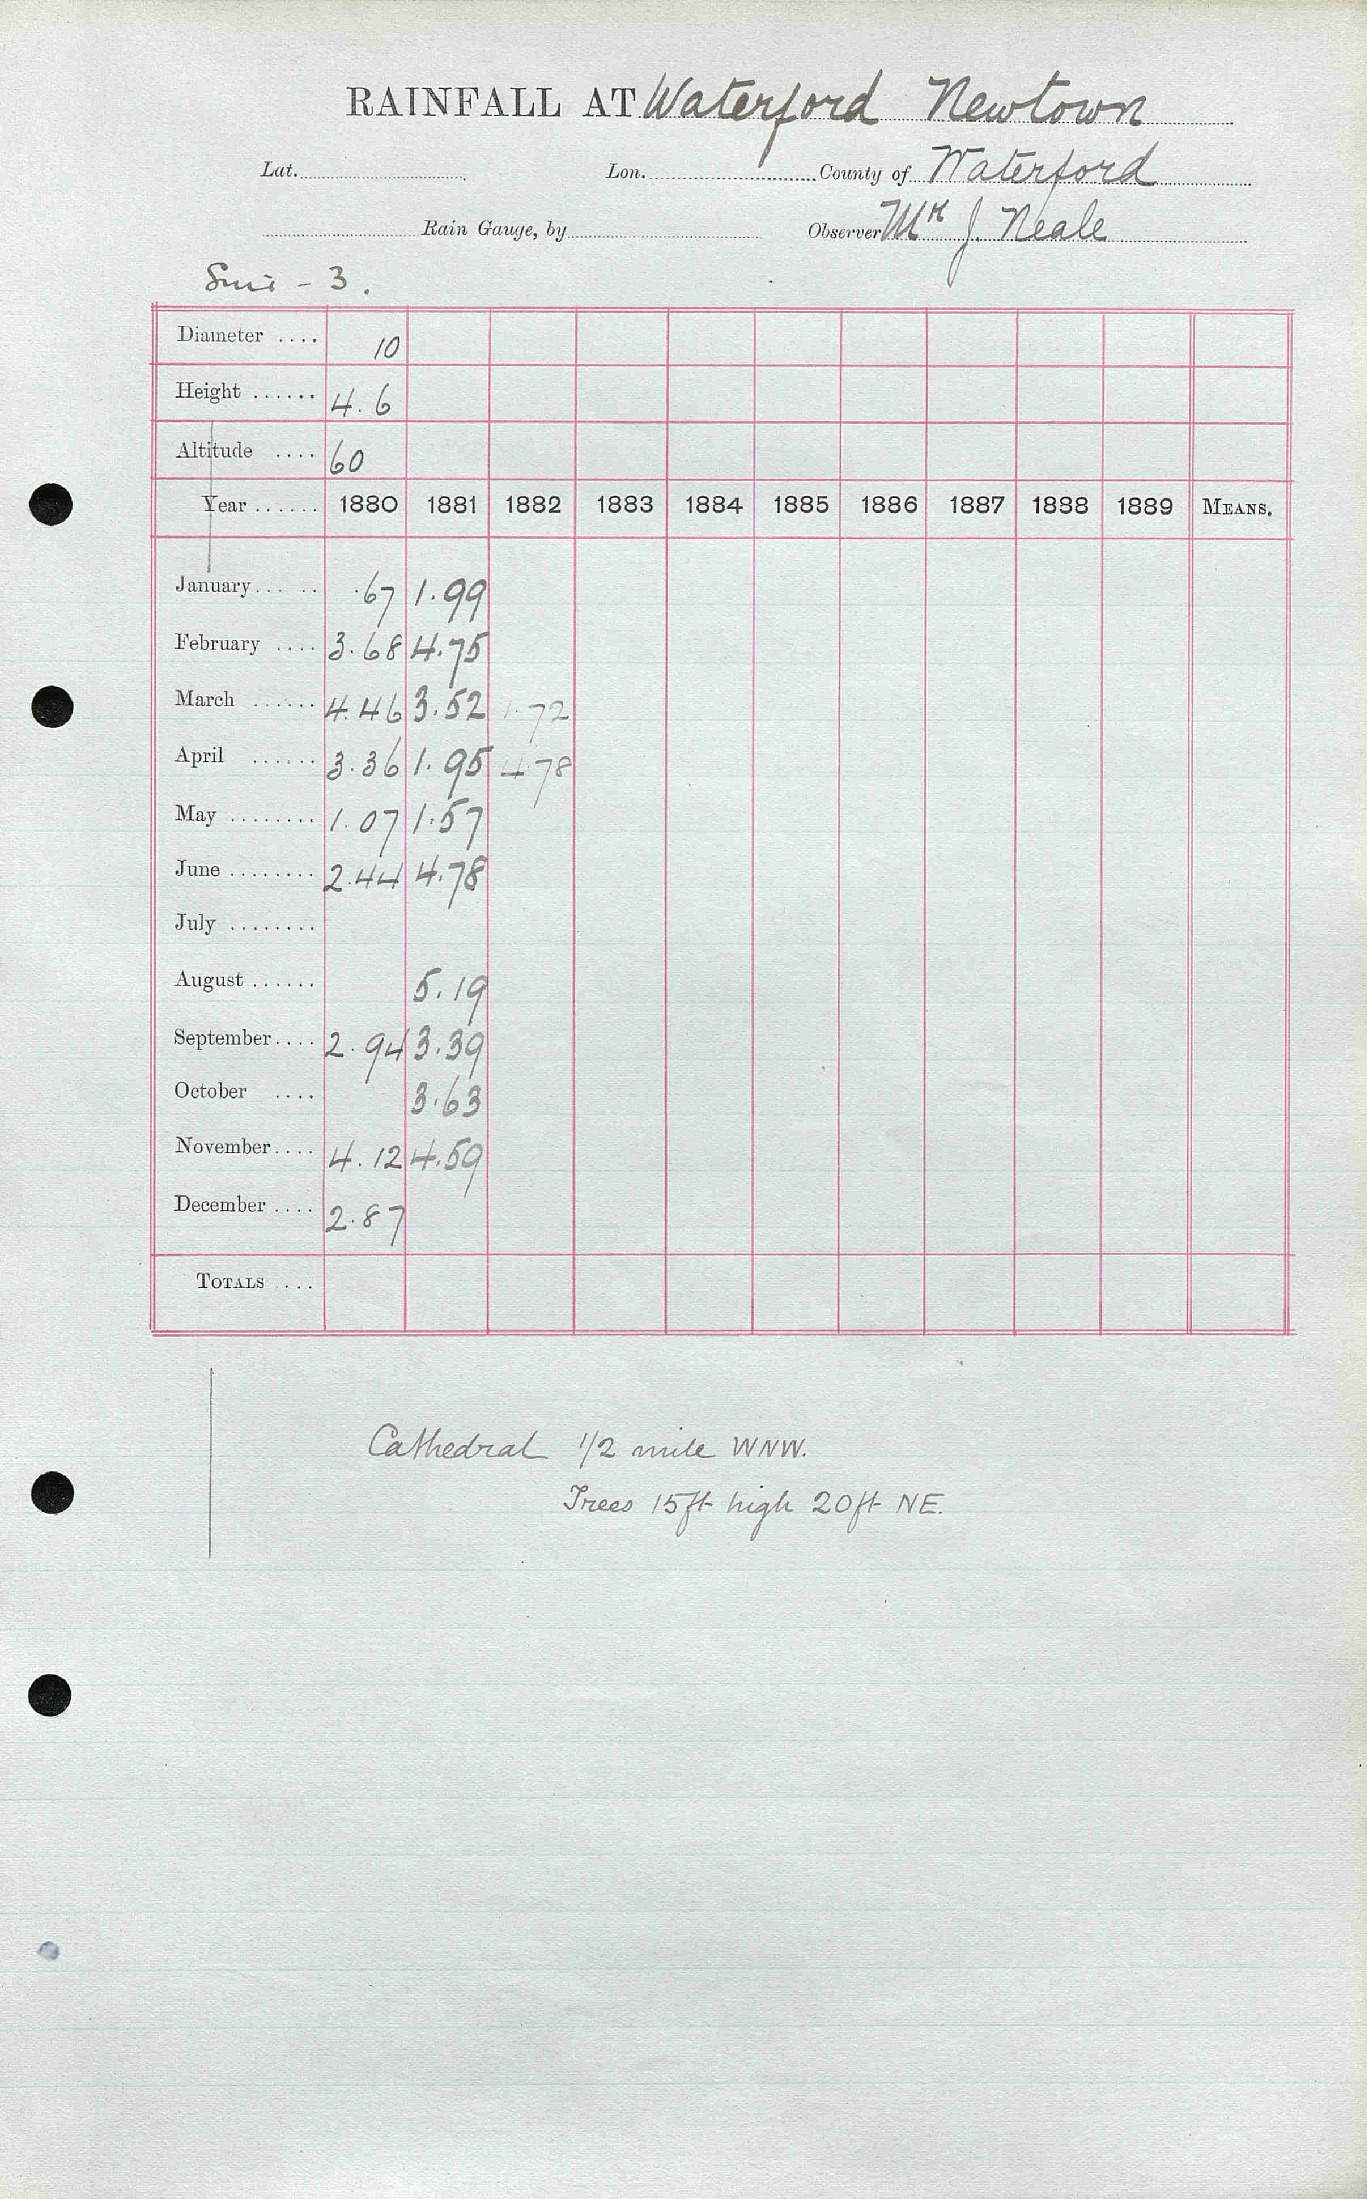 RAINFALL AT Waterford Newtown
Lat. Lon. County of Waterford
Rain Gauge, by Observer Mr J. Neale
- 3.
Diameter .... 10
Height ...... 4.6
Altitude .... 60
Year ...... 1880 1881 1882 1883 1884 1885 1886 1887 1888 1889 MEANS.
January... .. .67 1.99
February .... 3.68 4.75
March ...... 4.46 3.52 1.72
April ...... 3.36 1.95 4.78
May ........ 1.07 1.57
June ........ 2.44 4.78
July ........
August ...... 5.19
September.... 2.94 3.39
October .... 3.63
November.... 4.12 4.59
December .... 2.87
TOTALS ....
Cathedral 1/2 mile WNW.
Trees 15ft high 20ft NE.